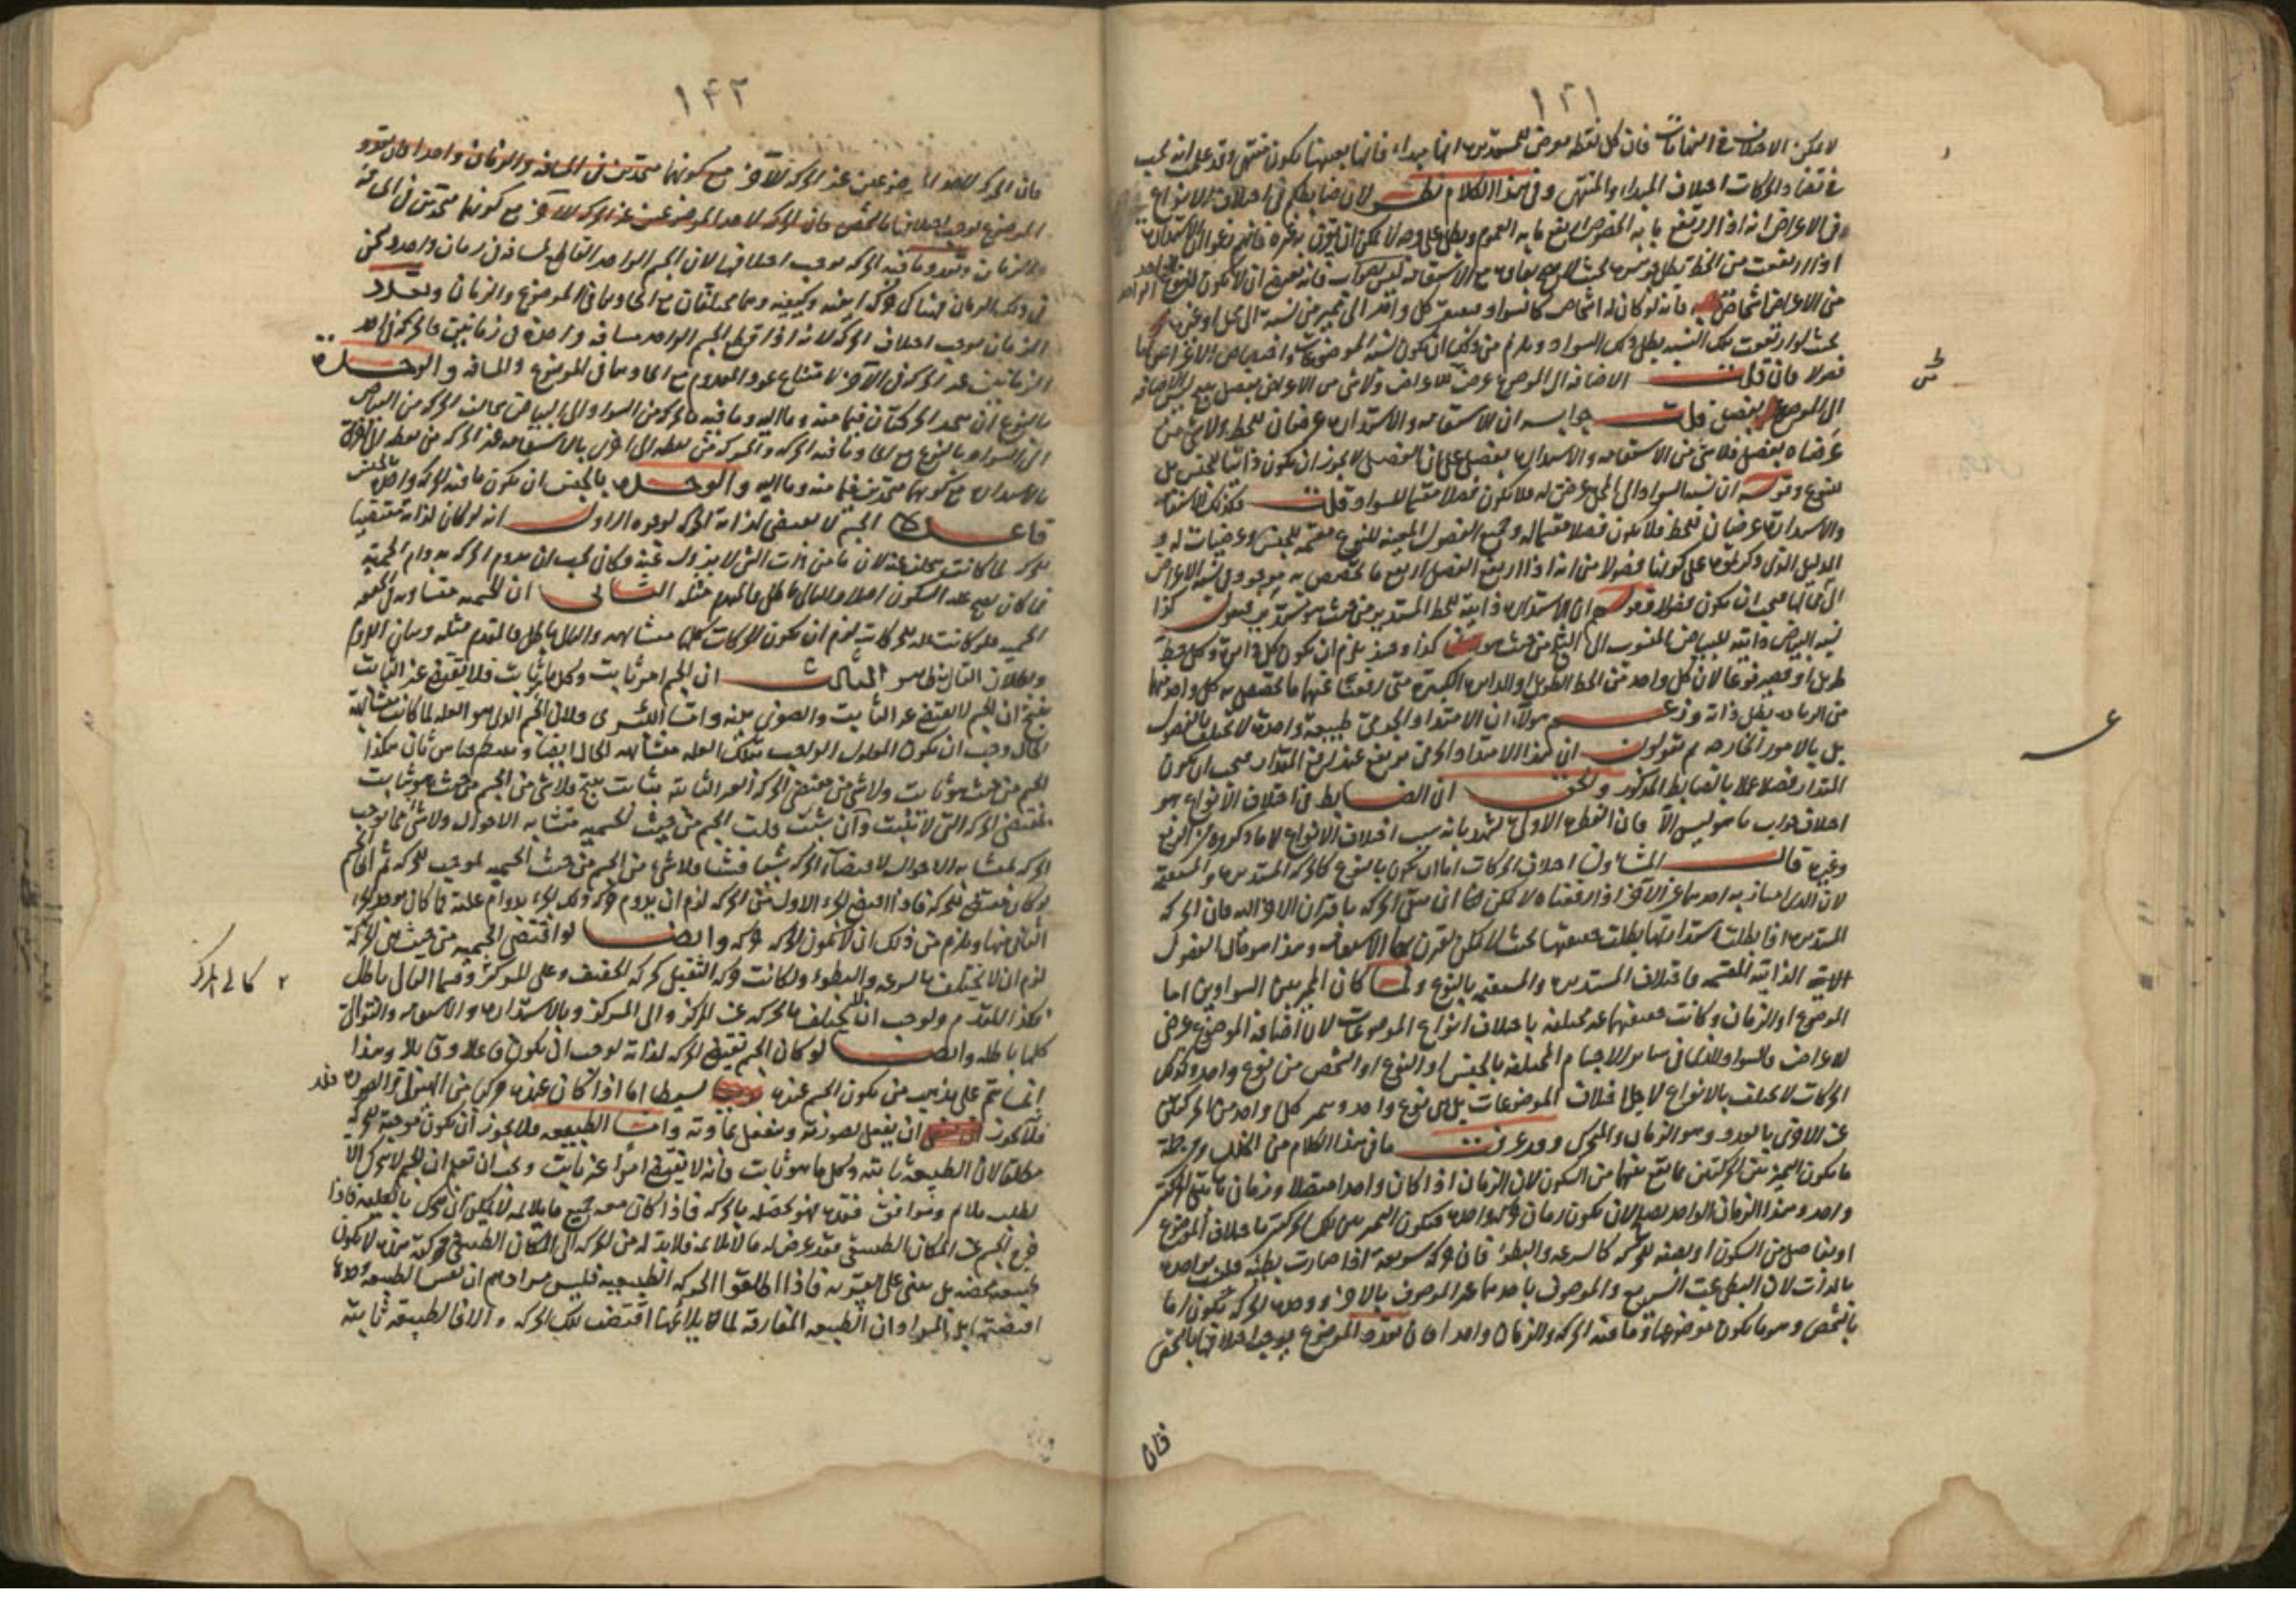 ١٤١
لا يمكن الاختلاف في النهايات فان كل نقطة تفرض للمستديرة انها مبداء فانها بعينها يكون منتهى وقد علمت انه يجب
في تضاد الحركات اختلاف المبداء والمنتهى وفي هذا الكلام نظر لان ضابطكم في اختلاف الانواع
في الاعراض انه اذا ارتفع ما به الخصوص ارتفع ما به العموم وبطل على وجه لا يمكن ان يقترن به غيره
اذا ارتفعت من الخط يبطل
من الاعراض اشخاص فانه لو كان له اشخاص كالسواد
بحيث لو ارتفعت تلك النسبة بطل ذلك السواد ويلزم من ذلك ان يكون نسبة الموضوعات
فصولا فان قلت الاضافة الى الموضوع عرض للاعراض ولا شي من الاعراض بفصل
الى الموضوع بفصل قلت جوابه ان الاستقامة والاستدارة عرضان للخط ولا شي من
عرضياه بفصل فلا شي من الاستقامة والاستدارة بفصل على ان الفصل لا يجوز ان يكون ذاتيا للجنس بل
للنوع وقوله ان نسبة السواد الى المحل عرض له فلا يكون فصلا مقسما للسواد قلت فكذلك الاستقامة
والاستدارة عرضيان للخط فلا يكون فصلا مقسما له وجميع الفصول المعينة للنوع مقسمة للجنس وعرضيات له و
الدليل الذي ذكرتموه على كونها فصولا من انه اذا ارتفع الفصل ارتفع ما تخصص به موجود في نسبة الاعراض
الى محالها فيجب ان يكون فصولا وقولهم ان الاستدارة ذاتية للخط المستدير من حيث هو مستدير فنقول كذا
نسبة البياض ذاتية للبياض المنسوب الى الثلج من حيث هو كذا وحينئذ يلزم ان يكون كل دائرة وكل خط
طويل او قصير نوعا لان كل واحد من الخط الطويل او الدائرة الكبيرة متى رفعت عنهما ما تخصص به كل واحد منهما
من الزيادة بطل ذاته وزعم هولاء ان الامتداد الجرمي طبيعة واحدة لا تختلف بالفصول
بل بالامور الخارجة ثم يقولون ان هذا الامتداد الجرمي يرتفع عند رفع المقدار فيجب ان يكون
المقدار فصلا عملا بالضابط المذكور والحق ان الضابط في اختلاف الانواع هو
اختلاف جواب ما هو ليس الا فان الفطرة الاولى تشهد بانه سبب اختلاف الانواع لا ما ذكروه من الرفع
وغيره قالت المشاؤون اختلاف الحركات اما ان يكون بالنوع كالحركة المستديرة والمستقيمة
لان الذي امتاز به احدهما عن الآخر اذا رفعناه لا يمكن لنا ان نبقي الحركة باقتران الآخر اليه فان الحركة
المستديرة اذا بطلت استدارتها بطلت حقيقتها بحيث لا يمكن تقرن بها الاستقامة وهذا هو حال الفصول
الآتية الذاتية المقسمة فاختلاف المستديرة والمستقيمة بالنوع ولما كان المميز بين السوادين اما
الموضوع او الزمان وكانت حقيقتهما غير مختلفة باختلاف انواع الموضوعات لان اضافة الموضوع عرضي
للاعراض فالسواد الذي في ساير الاجسام المختلفة بالجنس او النوع او الشخص من نوع واحد وكذلك
الحركات لا تختلف بالانواع لاجل اختلاف الموضوعات بل هي نوع واحد ويميز كل واحد من الحركتين
عن الاخرى بالعدد وهو الزمان والمتحرك وقد عرفت ما في هذا الكلام من الخلل
ما يكون التميز بين الحركتين بما يقع بينهما من السكون لان الزمان اذا كان واحدا متصلا
واحد وهذا الزمان الواحد يصلح لان يكون زمان حركة واحدة فيكون التميز بين تلك الحركتين باختلاف الموضوع
او بفاصل من السكون او بصفة للحركة كالسرعة والبطؤ فان حركة سريعة اذا صارت بطيئة فليست بواحدة
بالذات لان البطي غير السريع والموصوف باحدهما غير الموصوف بالاخر ووحدة الحركة تكون اما
بالشخص وهو ما يكون موضوعها وما فيه الحركة والزمان واحدا فان تعدد الموضوع يوجب اختلافها بالشخص
فان
١٤٢
فان الحركة لاحد الموضوعين غير الحركة للآخر مع كونهما متحدتين في المسافة والزمان واحدا فان تعدد
الموضوع يوجب اختلافها بالشخص فان الحركة لاحد الموضوعين غير الحركة للآخر مع كونهما متحدتين في المسافة
والزمان وتعدد ما فيه الحركة يوجب اختلافها لان الجسم الواحد القاطع لمسافة في زمان واحد
في ذلك الزمان فهناك حركة اينية وكيفية وهما مختلفتان مع اتحادهما في الموضوع والزمان وتعدد
الزمان يوجب اختلاف الحركة لانه اذا قطع الجسم الواحد مسافة واحدة في زمانين فالحركة في احد
الزمانين غير الحركة في الآخر لامتناع عود المعدوم مع اتحادهما في الموضوع والمسافة والوحدة
بالنوع ان يتحد الحركتان فيما منه وما اليه وما فيه فالحركة من السواد الى البياض تخالف الحركة من البياض
الى السواد بالنوع مع اتحاد ما فيه الحركة والحركة من نقطة الى اخرى بالاستقامة غير الحركة من نقطة الى اخرى
بالاستدارة مع كونهما متحدتين فيما منه وما اليه والوحدة بالجنس ان يكون ما فيه الحركة واحدا بالجنس
قاعدة الجسم لا يقتضي لذاته الحركة لوجوه الاول انه لو كان لذاته مقتضيا
للحركة لما كانت تتخلف عنه لان ما من ذات الشي لا يزول عنه وكان يجب ان يدوم الحركة بدوام الجسمية
فما كان يصح عليه السكون اصلا والتالي باطل فالمقدم مثله الثاني ان الجسمية متساوية في الحقيقة
الجسمية فلو كانت علة للحركات لزم ان يكون الحركات كلها متشابهة والتالي باطل فالمقدم مثله وبيان اللزوم
وبطلان التالي ظاهر الثالث ان الجسم امر ثابت وكل ما يثابت فلا يقتضي غير الثابت
ينتج ان الجسم لا يقتضي غير الثابت والصغرى بينة واما الكبرى فلان الجسم الذي هو العلة لما كانت متشابهة
الحال وجب ان يكون المعلول الواجب بتلك العلة متشابهة الحال ايضا وينتظم قياس ثان هكذا
الجسم من حيث هو ثابت ولا شي من مقتضى الحركة الغير الثابتة بثابت ينتج فلا شي من الجسم من حيث هو ثابت
بمقتضي الحركة التي لا تثبت وان شئت قلت الجسم من حيث الجسمية متشابه الاحوال ولا شي مما يوجب
الحركة بمتشابه الاحوال لاقتضاء الحركة شيئا فشيئا فلا شي من الجسم من حيث الجسمية لموجب للحركة ثم الجسم
لو كان مقتضى للحركة فاذا اقتضى الجزء الاول من الحركة لزم ان يدوم ذلك الجزء بدوام علته فما كان يوجد الجزء
الثاني منها ويلزم من ذلك ان لا يكون الحركة حركة وايضا لو اقتضى الجسمية من حيث هي الحركة
لزم ان لا يختلف بالسرعة والبطؤ ولكانت حركة الثقيل كحركة الخفيف وعلى المركز وفيها التالي باطل
فكذا المقدم ولوجب ان لا يختلف بالحركة عن المركز والى المركز وبالاستدارة والاستقامة والتوالي
كلها باطلة وايضا لو كان الجسم يقتضي الحركة لذاته لوجب ان يكون فاعلا وقابلا وهذا
انما يتم على مذهب من يكون الجسم عنده بسيطا اما اذا كان عنده مركبا من الهيولى والصورة فقد
فلا يجوز ان يفعل بصورته وينفعل بمادته واما الطبيعة فلا يجوز ان تكون موجبة للحركة
مطلقا لان الطبيعة ثابتة وكل ما هو ثابت فانه لا يقتضي امرا غير ثابت ويجب ان تعلم ان الجسم لا يتحرك الا
لطلب ملايم وموافق فقده فهو يحصله بالحركة فاذا كان معه جميع ما يلايمه فلا يمكن ان يتحرك بالطبيعة فاذا
خرج الجسم عن المكان الطبيعي فقد عرض له ما لا يلايمه فلا بد له من الحركة الى المكان الطبيعي فحركته منه لا يكون
طبيعية محضة بل يبتنى على القسرية فاذا اطلقوا الحركة الطبيعية فليس مرادهم ان نفس الطبيعة وحدها
اقتضتها بل المراد ان الطبيعة المفارقة لما يلايمها اقتضت تلك الحركة والا فالطبيعة ثابتة